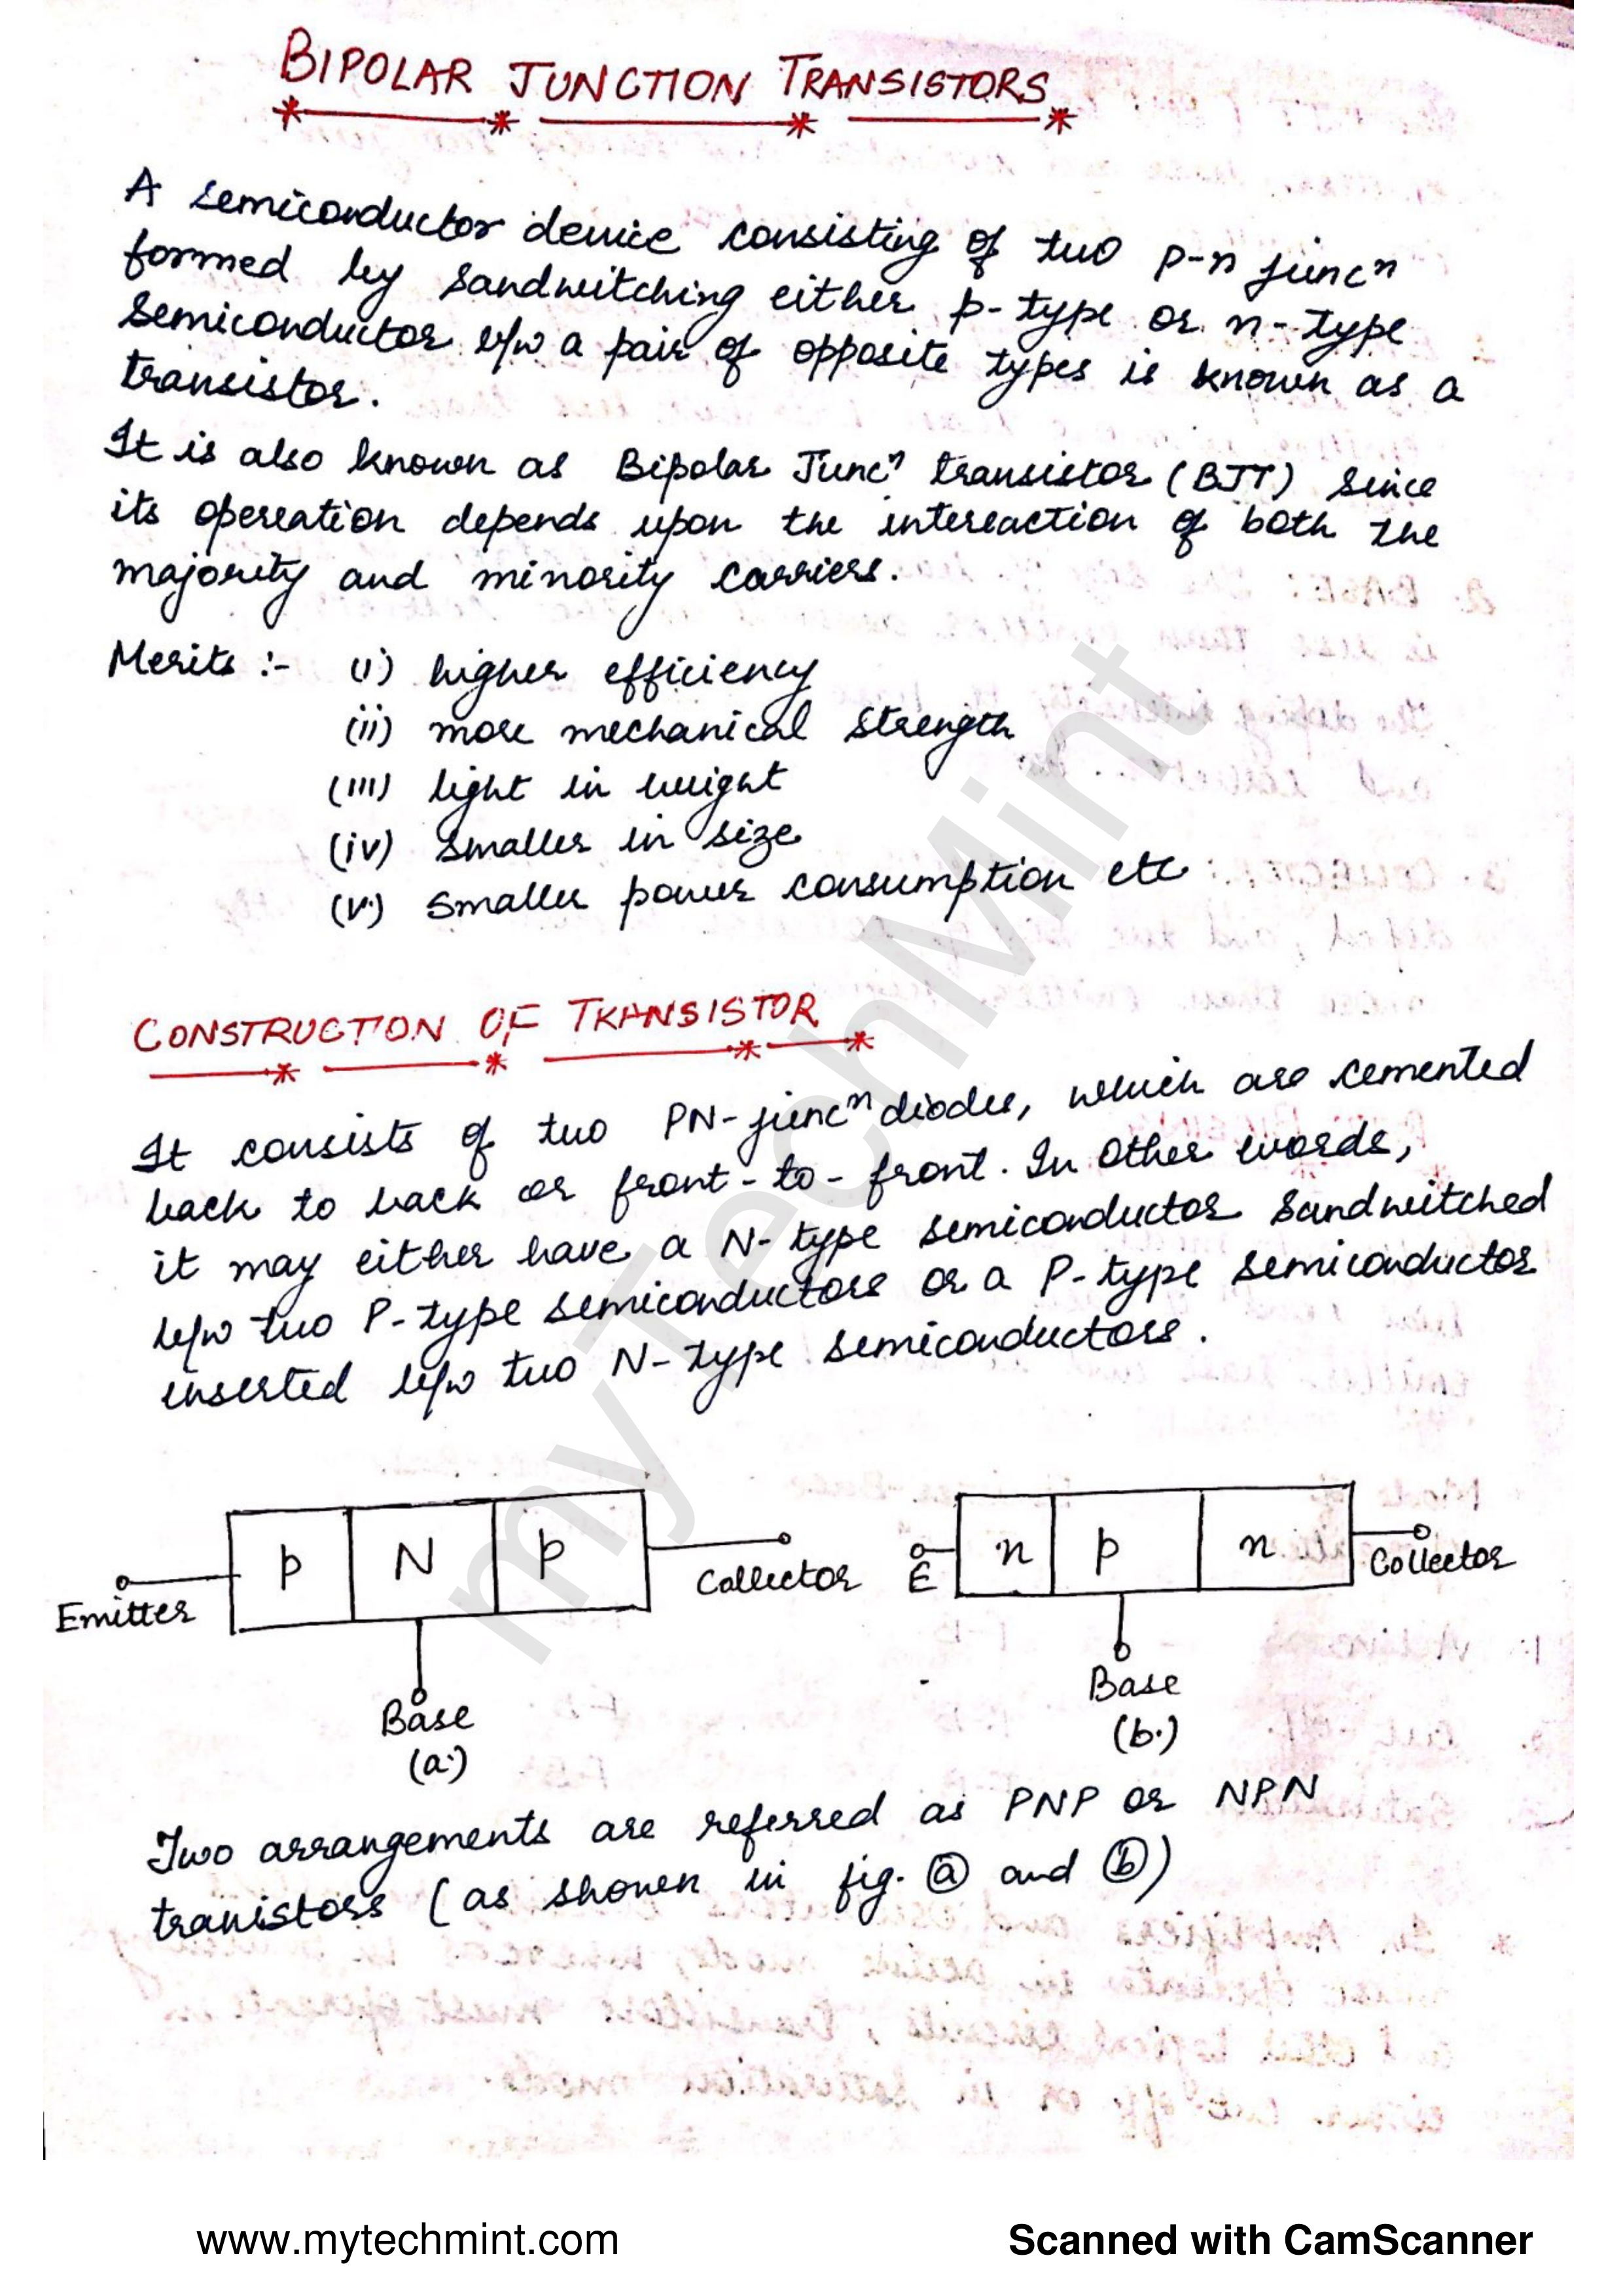 BIPOLAR JUNCTION TRANSISTORS
A semiconductor device consisting of two p-n juncⁿ
formed by sandwitching either p-type or n-type
semiconductor b/w a pair of opposite types is known as a
transistor.
It is also known as Bipolar Juncⁿ transistor (BJT) since
its opereation depends upon the intereaction of both the
majority and minority carriers.
Merits :- (i) higher efficiency
(ii) more mechanical strength
(iii) light in weight
(iv) smaller in size
(v.) smaller power consumption etc
CONSTRUCTION OF TRANSISTOR
It consists of two PN-juncⁿ diodes, which are cemented
back to back or front-to-front. In other words,
it may either have a N-type semiconductor sandwitched
b/w two P-type semiconductors or a P-type semiconductor
inserted b/w two N-type semiconductors.
p N p
n p n
Emitter
Collector
E
Collector
Base
(a.)
Base
(b.)
Two arrangements are referred as PNP or NPN
tranistors (as shown in fig. ⓐ and ⓑ)
myTechMint
www.mytechmint.com
Scanned with CamScanner